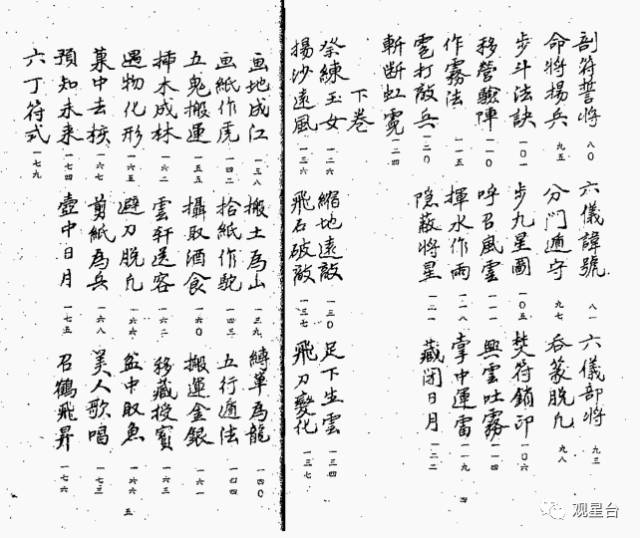 剖符誓将 八〇 六儀諱號 八一 六儀部将 九三
命将揚兵 九五 分門遁守 九七 吞篆脫九 九八
步斗法訣 一〇一 步九星圖 一〇五 焚符銷印 一〇六
移營驗陣 一一〇 呼召風雲 一一一 興雲吐霧 一一四
作霧法 一一五 揮水作雨 一一八 掌中運雷 一一九
雹打敵兵 一二〇 隐蔽将星 一二一 藏闭日月 一二二
斬断虹霓 一二四
下巻
祭練玉女 一二六 縮地遠敵 一三〇 足下生雲 一三四
揚沙遠風 一三六 飛石破敵 一三七 飛刀變化 一三七
四
画地成江 一三八 搬土為山 一三九 縛草為龍 一四〇
画紙作虎 一四二 拾紙作駝 一四三 五行遁法 一四四
五鬼搬運 一五五 攝取酒食 一六〇 搬運金銀 一六一
插木成林 一六二 雲軒送客 一六二 移藏授寳 一六三
遇物化形 一六五 避刀脫九 一六六 盆中取魚 一六六
菓中去核 一六七 剪紙為兵 一六八 美人歌唱 一七三
預知未来 一七四 壺中日月 一七五 召鶴飛昇 一七六
六丁符式 一七九
五
观星台